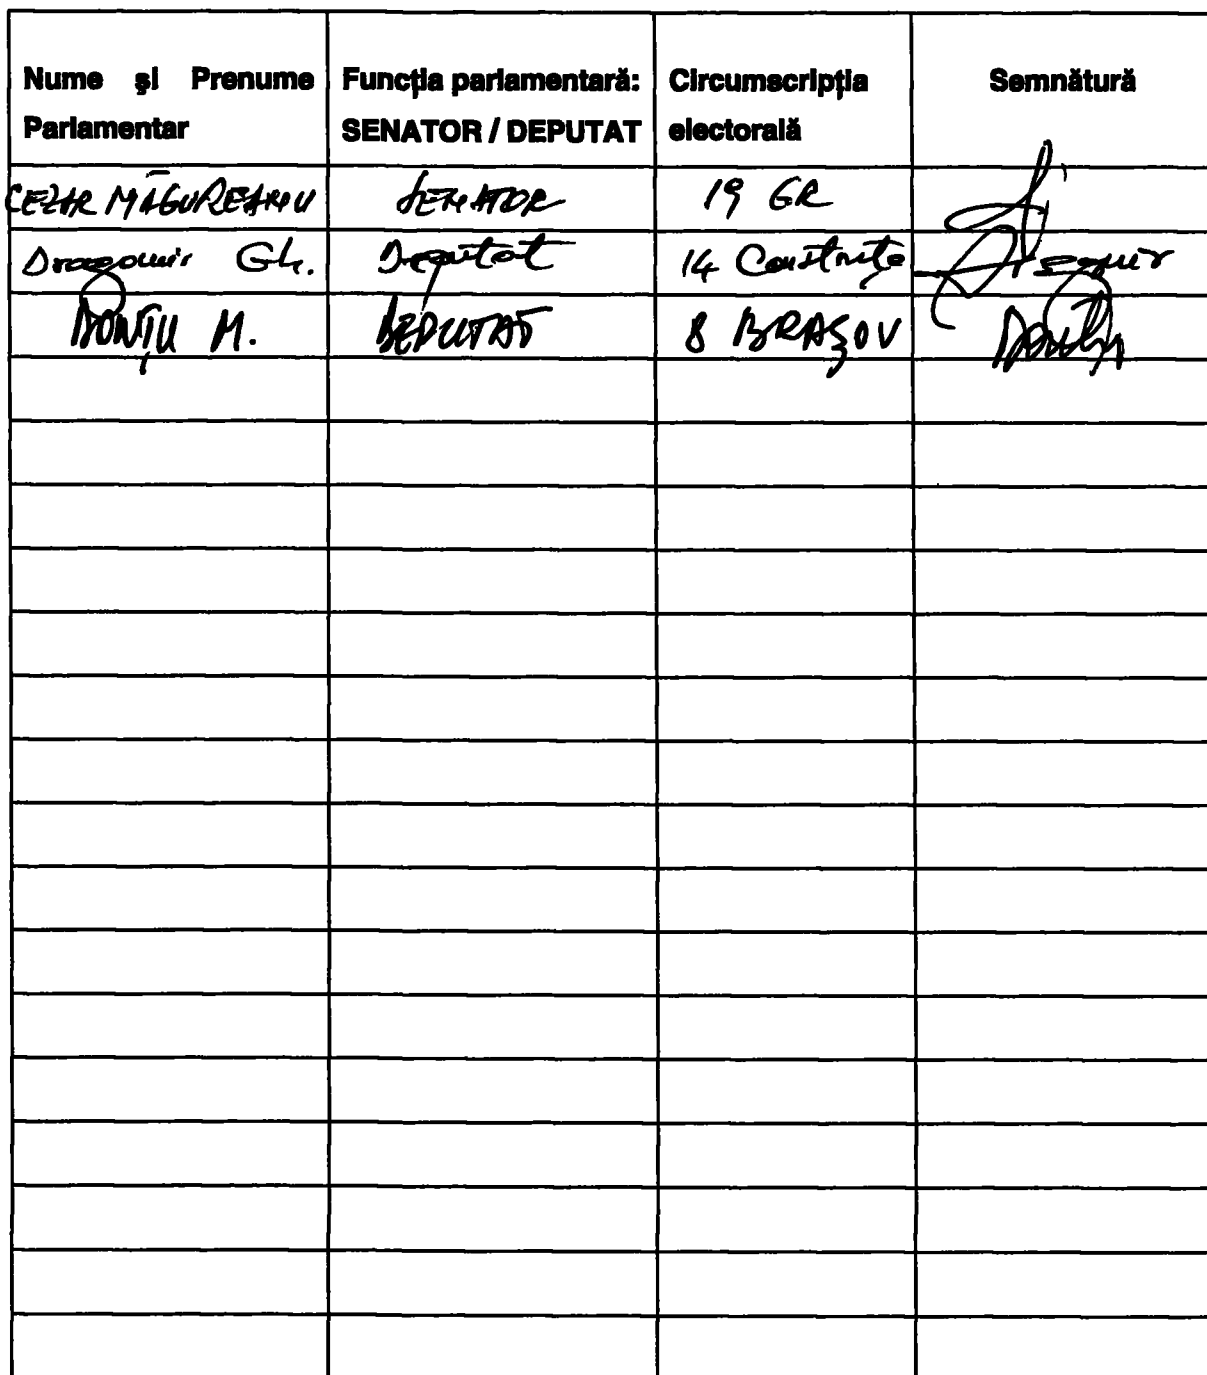 Nume și Prenume Parlamentar | Funcția parlamentară: SENATOR / DEPUTAT | Circumscripția electorală | Semnătură
CEZAR MĂGUREANU | SENATOR | 19 GR
Dragomir Gh. | Deputat | 14 Constanța
DONȚU M. | DEPUTAT | 8 BRAȘOV